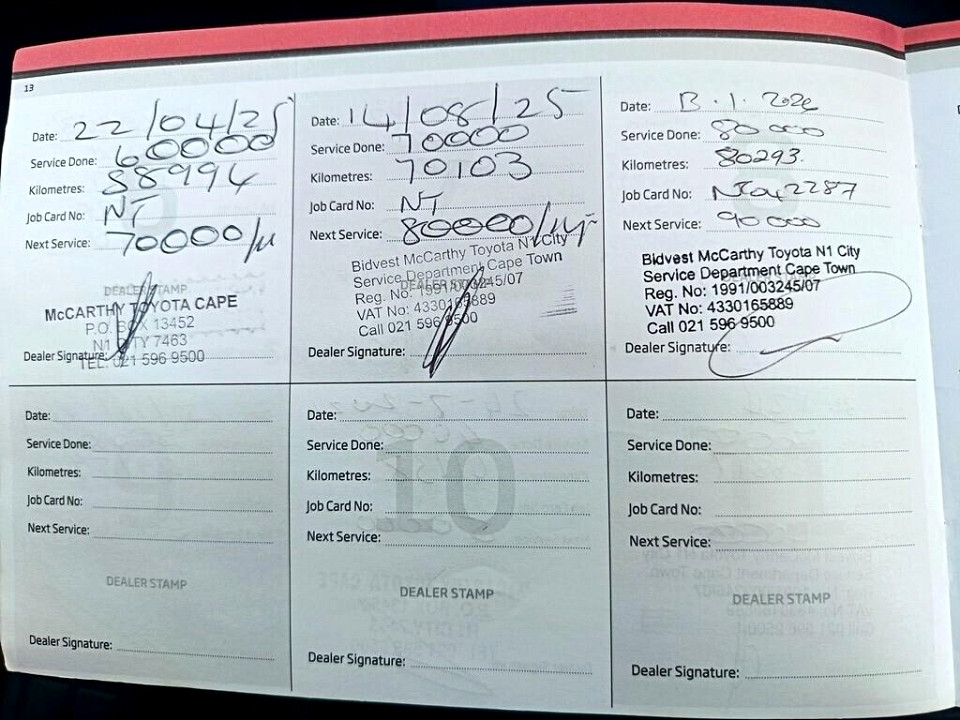 13
Date: 22/04/25
Service Done: 60000
Kilometres: 58994
Job Card No: NT
Next Service: 70000/
DEALER STAMP
McCARTHY TOYOTA CAPE
P.O. BOX 13452
N1 CITY 7463
TEL: 021 596 9500
Dealer Signature:
Date: 14/08/25
Service Done: 70000
Kilometres: 70103
Job Card No: NT
Next Service: 80000/
Bidvest McCarthy Toyota N1 City
Service Department Cape Town
DEALER STAMP
Reg. No: 1991/003245/07
VAT No: 4330165889
Call 021 596 9500
Dealer Signature:
Date: 13.1.2026
Service Done: 80 000
Kilometres: 80293.
Job Card No:
Next Service: 90 000
Bidvest McCarthy Toyota N1 City
Service Department Cape Town
Reg. No: 1991/003245/07
VAT No: 4330165889
Call 021 596 9500
Dealer Signature:
Date:
Service Done:
Kilometres:
Job Card No:
Next Service:
DEALER STAMP
Dealer Signature:
Date:
Service Done:
Kilometres:
Job Card No:
Next Service:
DEALER STAMP
Dealer Signature:
Date:
Service Done:
Kilometres:
Job Card No:
Next Service:
DEALER STAMP
Dealer Signature: